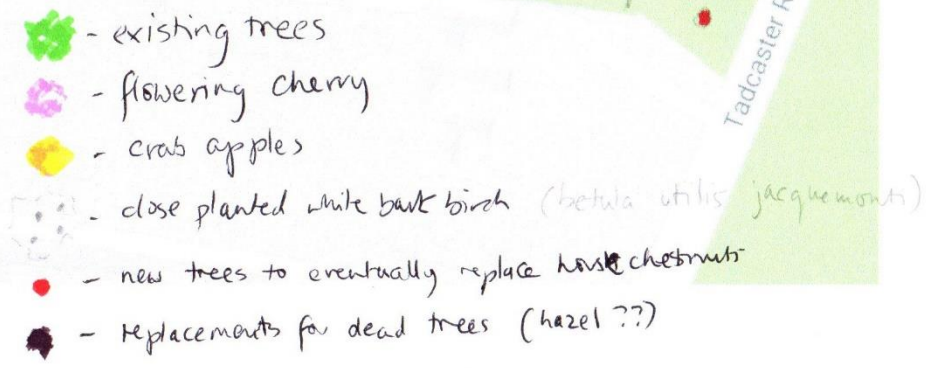 Tadcaster R
- existing trees
- flowering cherry
- crab apples
- close planted white bark birch (betula utilis jacquemonti)
- new trees to eventually replace horse chestnuts
- replacements for dead trees (hazel ??)